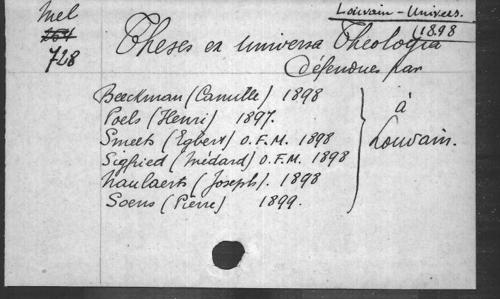 Mel
728
Louvain - Univers.
1898
Theses ex universa Theologia
défendues par
Beeckman (Camille) 1898
Poels (Henri) 1897.
Smeets (Egbert) O.F.M. 1898
Sigfried (Médard) O.F.M. 1898
Naulaerts (Joseph). 1898
Soens (Pierre) 1899.
à
Louvain.